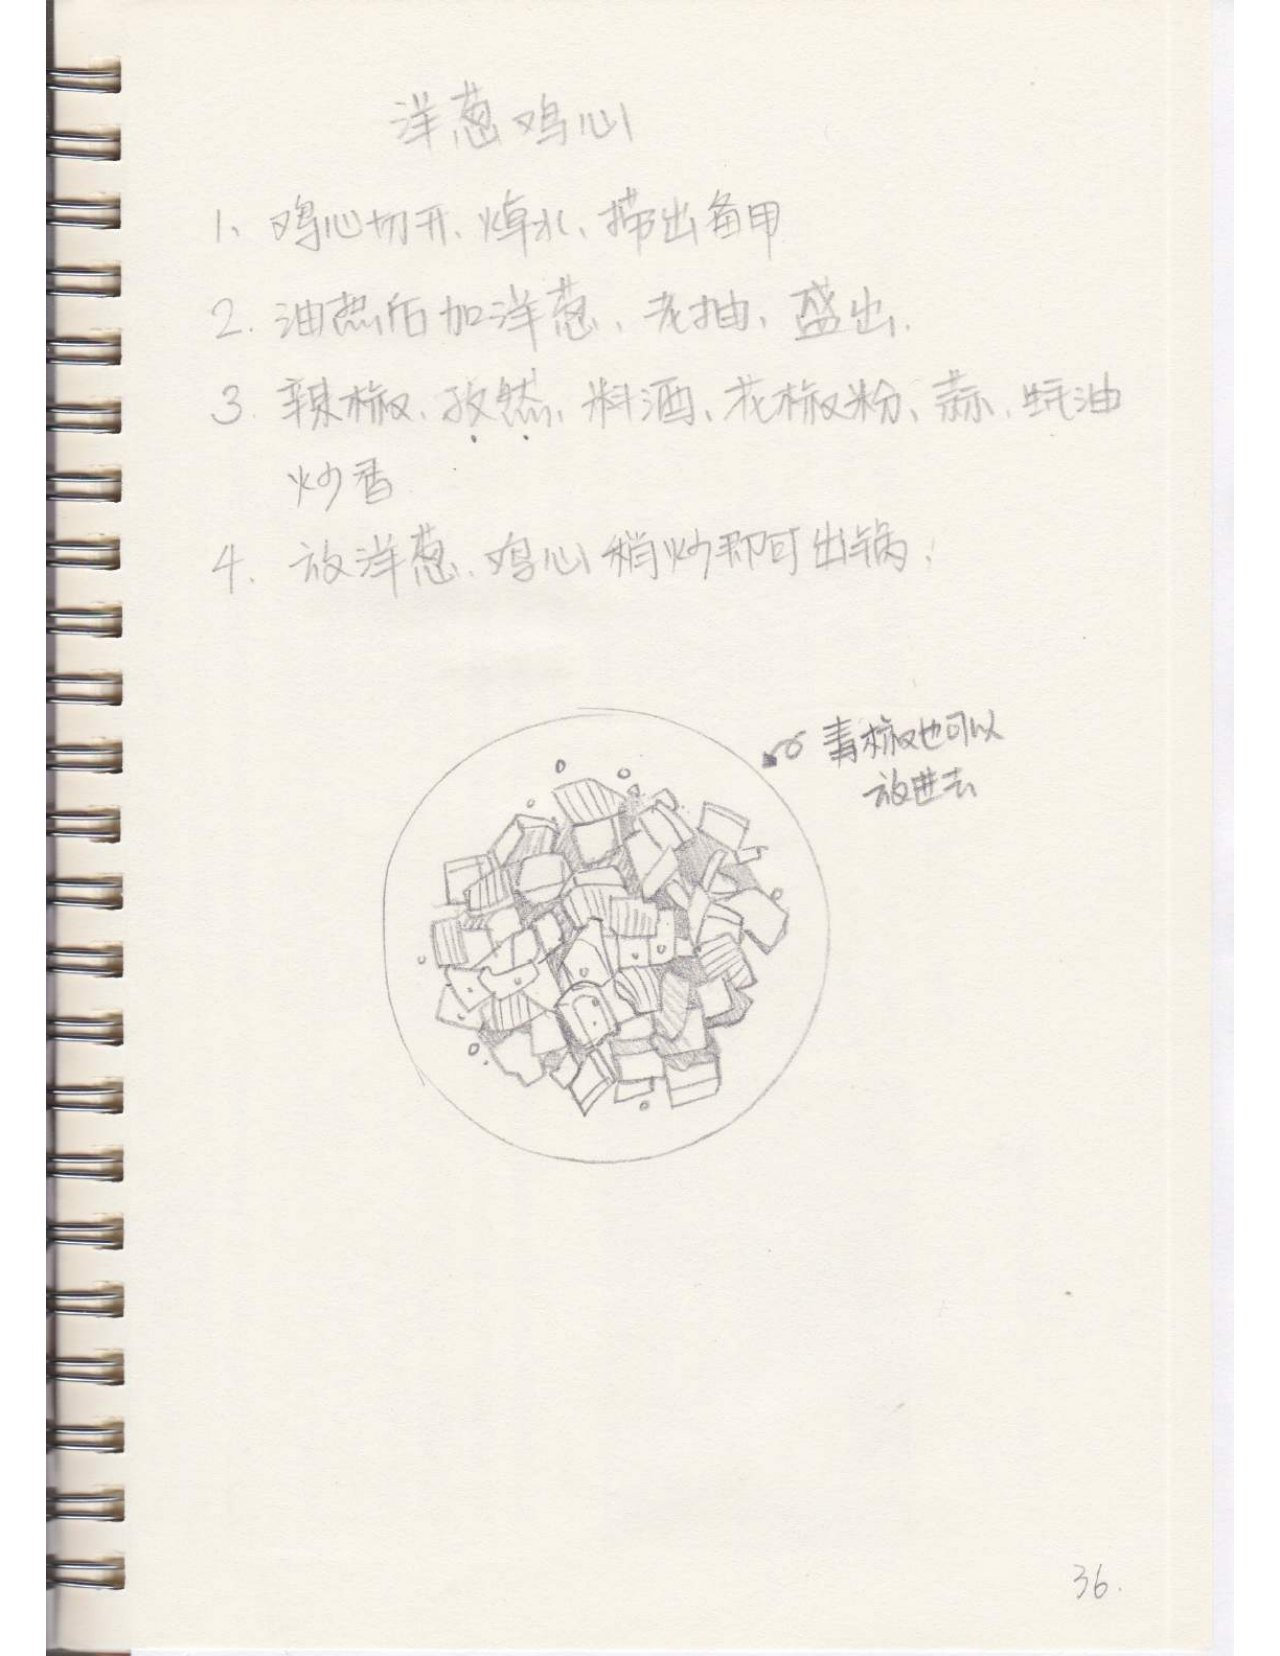 洋葱鸡心
1、鸡心切开、焯水、捞出备用
2. 油热后加洋葱、老抽、盛出.
3. 辣椒、孜然、料酒、花椒粉、蒜、蚝油
炒香
4. 放洋葱、鸡心稍炒即可出锅;
青椒也可以
放进去
36.